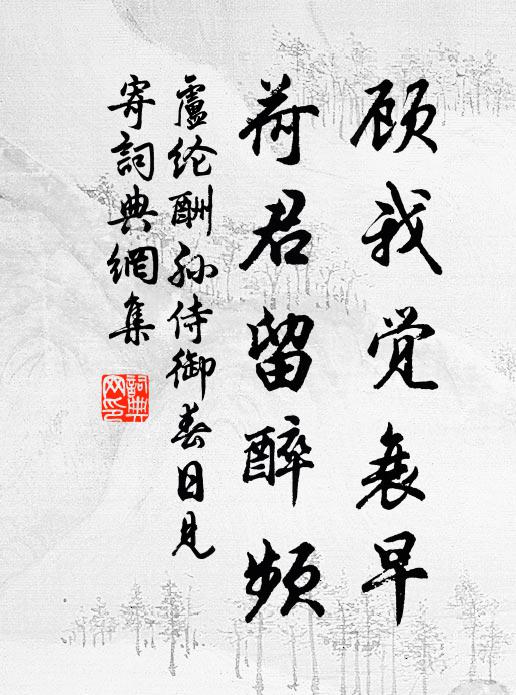 顾我觉衰早
荷君留醉频
盧纶酬孙侍御春日見
寄詞典網集
詞典
网印